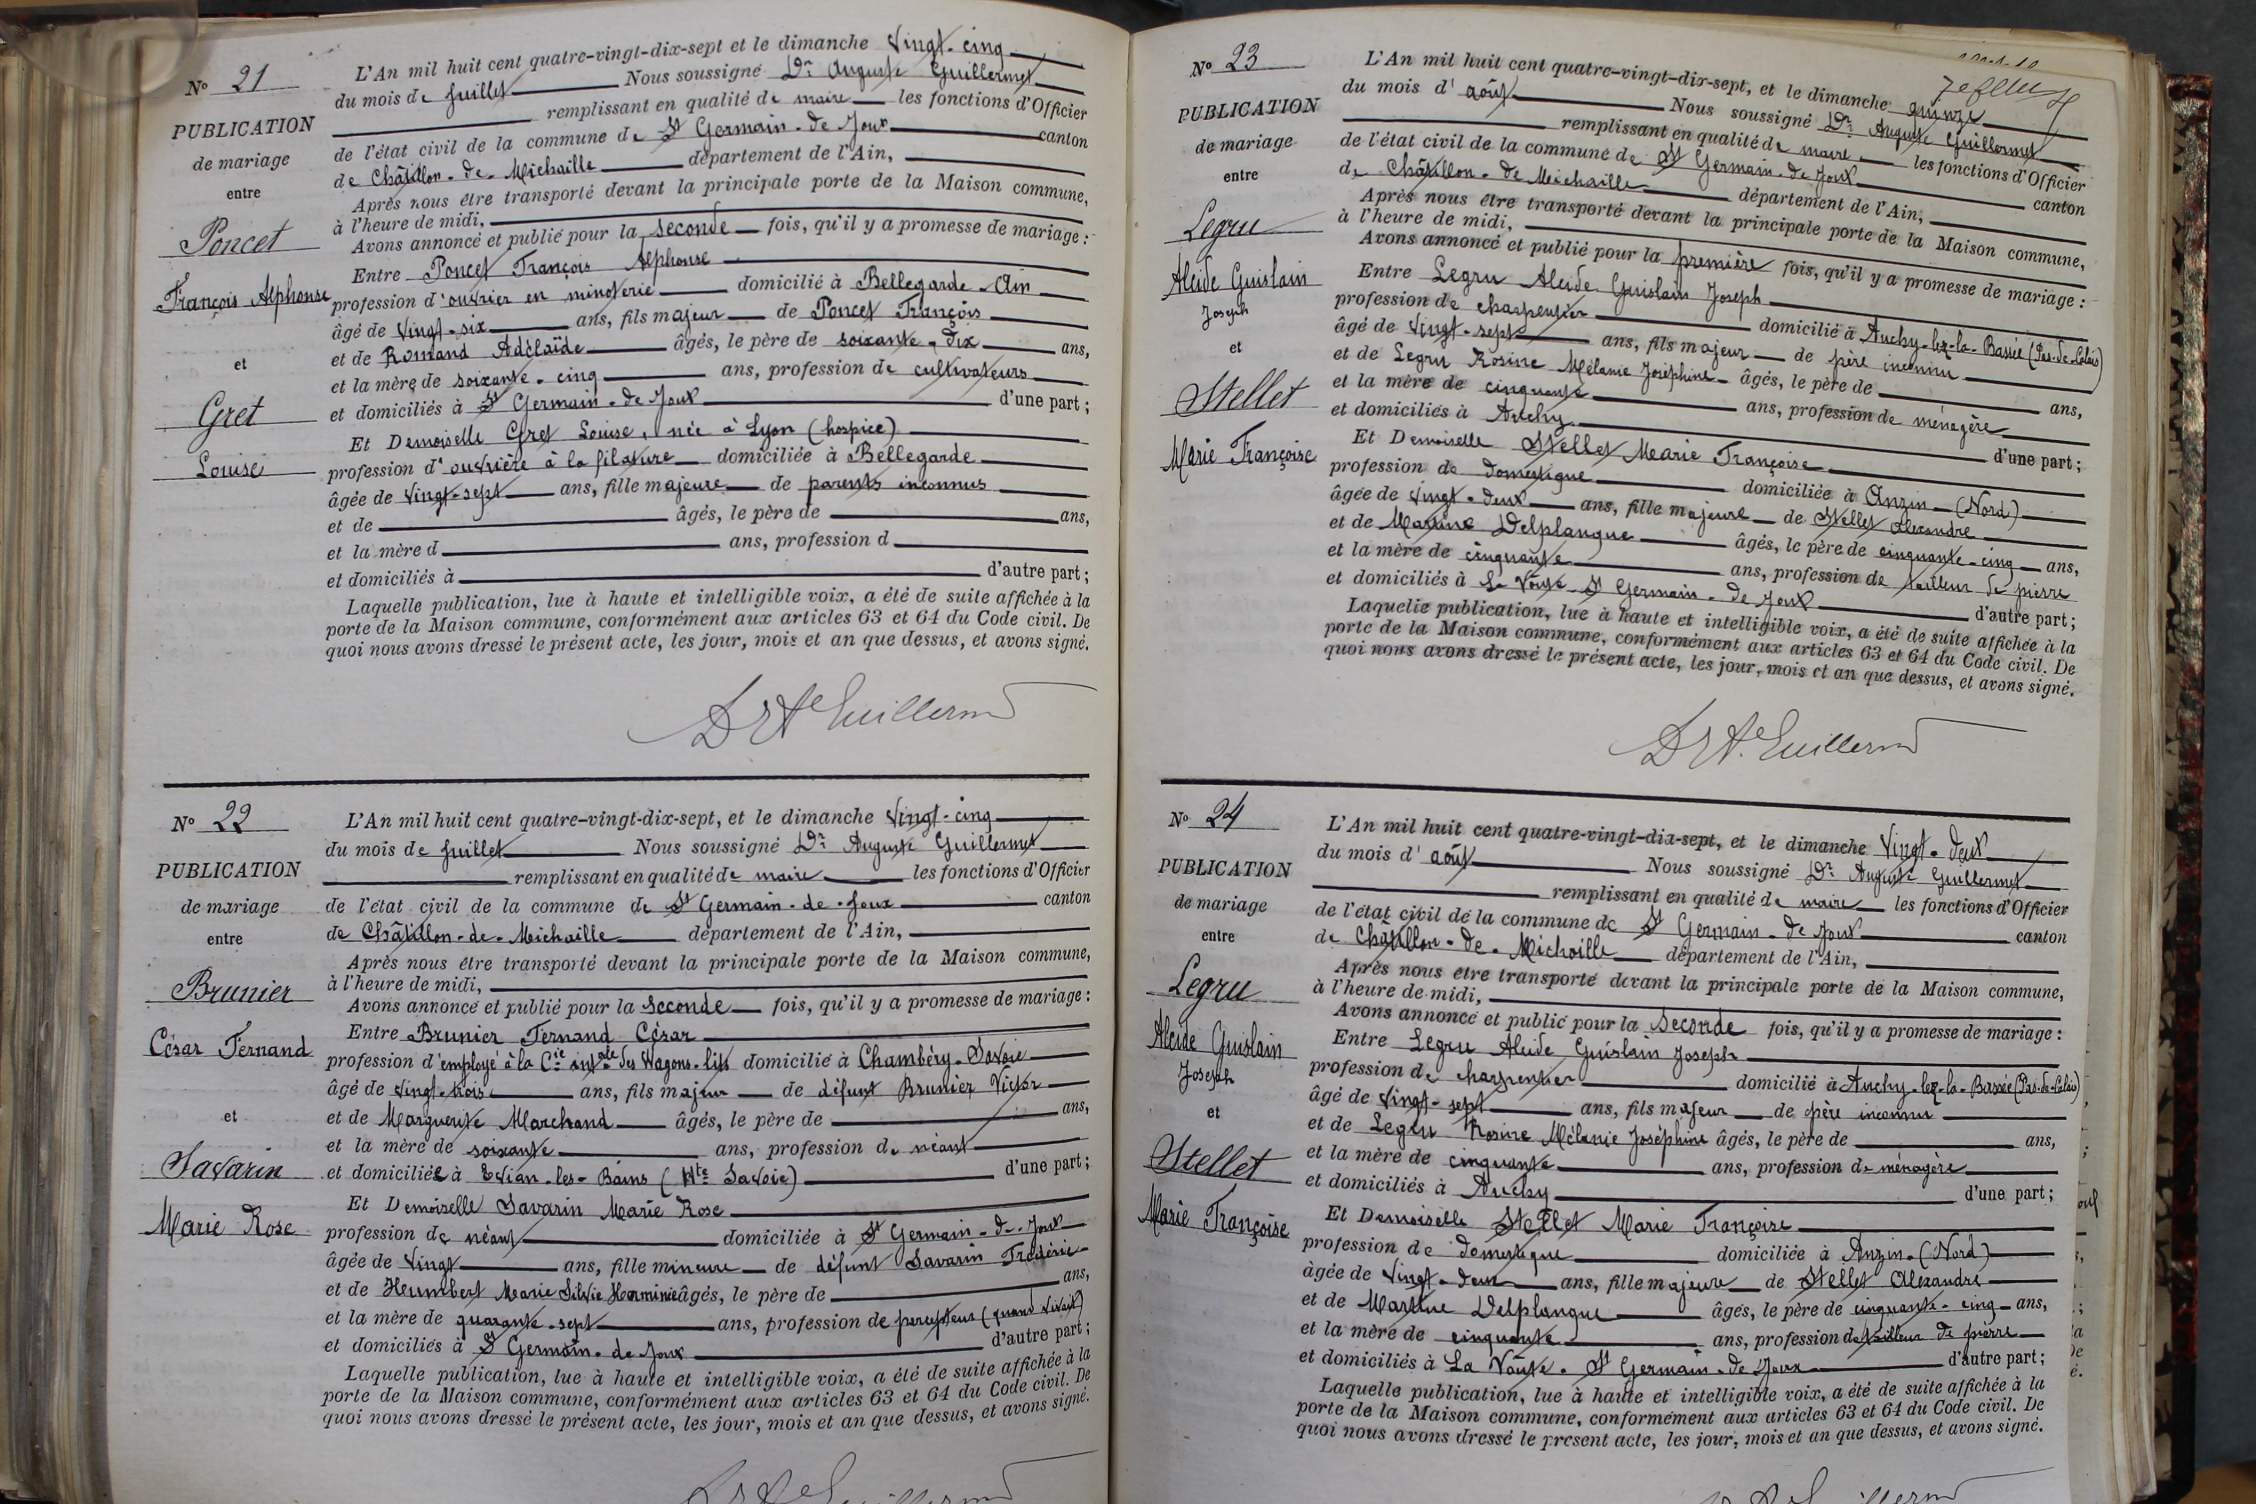 Nº 21
PUBLICATION
de mariage
entre
Poncet
François Alphonse
et
Gret
Louise
L'An mil huit cent quatre-vingt-dix-sept et le dimanche vingt-cinq
du mois de juillet Nous soussigné Dr Auguste Guillermet
remplissant en qualité de maire les fonctions d'Officier
de l'état civil de la commune de St Germain-de-Joux canton
de Châtillon-de-Michaille département de l'Ain,
Après nous être transporté devant la principale porte de la Maison commune,
à l'heure de midi,
Avons annoncé et publié pour la seconde fois, qu'il y a promesse de mariage :
Entre Poncet François Alphonse
profession d'ouvrier en minoterie domicilié à Bellegarde-Ain
âgé de vingt-six ans, fils majeur de Poncet François
et de Romand Adélaïde âgés, le père de soixante-dix ans,
et la mère de soixante-cinq ans, profession de cultivateurs
et domiciliés à St Germain-de-Joux d'une part ;
Et Demoiselle Gret Louise, née à Lyon (hospice)
profession d'ouvrière à la filature domiciliée à Bellegarde
âgée de vingt-sept ans, fille majeure de parents inconnus
et de âgés, le père de ans,
et la mère d ans, profession d
et domiciliés à d'autre part ;
Laquelle publication, lue à haute et intelligible voix, a été de suite affichée à la
porte de la Maison commune, conformément aux articles 63 et 64 du Code civil. De
quoi nous avons dressé le présent acte, les jour, mois et an que dessus, et avons signé.
Dr Ate Guillermet
Nº 22
PUBLICATION
de mariage
entre
Brunier
César Fernand
et
Savarin
Marie Rose
L'An mil huit cent quatre-vingt-dix-sept, et le dimanche vingt-cinq
du mois de juillet Nous soussigné Dr Auguste Guillermet
remplissant en qualité de maire les fonctions d'Officier
de l'état civil de la commune de St Germain-de-Joux canton
de Châtillon-de-Michaille département de l'Ain,
Après nous être transporté devant la principale porte de la Maison commune,
à l'heure de midi,
Avons annoncé et publié pour la seconde fois, qu'il y a promesse de mariage :
Entre Brunier Fernand César
profession d'employé à la Cie intale des Wagons-lits domicilié à Chambéry-Savoie
âgé de vingt-trois ans, fils majeur de défunt Brunier Victor
et de Marguerite Marchand âgés, le père de ans,
et la mère de soixante ans, profession de néant
et domiciliée à Evian-les-Bains (Hte Savoie) d'une part ;
Et Demoiselle Savarin Marie Rose
profession de néant domiciliée à St Germain-de-Joux
âgée de vingt ans, fille mineure de défunt Savarin Frédéric
et de Humbert Marie Silvie Herminie âgés, le père de ans,
et la mère de quarante-sept ans, profession de percepteur (quand vivait)
et domiciliés à St Germain-de-Joux d'autre part ;
Laquelle publication, lue à haute et intelligible voix, a été de suite affichée à la
porte de la Maison commune, conformément aux articles 63 et 64 du Code civil. De
quoi nous avons dressé le présent acte, les jour, mois et an que dessus, et avons signé.
Nº 23
PUBLICATION
de mariage
entre
Legru
Alcide Guislain
Joseph
et
Stellet
Marie Françoise
L'An mil huit cent quatre-vingt-dix-sept, et le dimanche quinze
du mois d'août Nous soussigné Dr Auguste Guillermet
remplissant en qualité de maire les fonctions d'Officier
de l'état civil de la commune de St Germain-de-Joux canton
de Châtillon-de-Michaille département de l'Ain,
Après nous être transporté devant la principale porte de la Maison commune,
à l'heure de midi,
Avons annoncé et publié pour la première fois, qu'il y a promesse de mariage :
Entre Legru Alcide Guislain Joseph
profession de charpentier domicilié à Auchy-lez-la-Bassée (Pas-de-Calais)
âgé de vingt-sept ans, fils majeur de père inconnu
et de Legru Rosine Mélanie Joséphine âgés, le père de ans,
et la mère de cinquante ans, profession de ménagère
et domiciliés à Auchy d'une part ;
Et Demoiselle Stellet Marie Françoise
profession de domestique domiciliée à Anzin-(Nord)
âgée de vingt-deux ans, fille majeure de Stellet Alexandre
et de Martine Delplanque âgés, le père de cinquante-cinq ans,
et la mère de cinquante ans, profession de tailleur de pierre
et domiciliés à La Voûte-St Germain-de-Joux d'autre part ;
Laquelle publication, lue à haute et intelligible voix, a été de suite affichée à la
porte de la Maison commune, conformément aux articles 63 et 64 du Code civil. De
quoi nous avons dressé le présent acte, les jour, mois et an que dessus, et avons signé.
Dr Ate Guillermet
Nº 24
PUBLICATION
de mariage
entre
Legru
Alcide Guislain
Joseph
et
Stellet
Marie Françoise
L'An mil huit cent quatre-vingt-dix-sept, et le dimanche vingt-deux
du mois d'août Nous soussigné Dr Auguste Guillermet
remplissant en qualité de maire les fonctions d'Officier
de l'état civil de la commune de St Germain-de-Joux canton
de Châtillon-de-Michaille département de l'Ain,
Après nous être transporté devant la principale porte de la Maison commune,
à l'heure de midi,
Avons annoncé et publié pour la seconde fois, qu'il y a promesse de mariage :
Entre Legru Alcide Guislain Joseph
profession de charpentier domicilié à Auchy-lez-la-Bassée (Pas-de-Calais)
âgé de vingt-sept ans, fils majeur de père inconnu
et de Legru Rosine Mélanie Joséphine âgés, le père de ans,
et la mère de cinquante ans, profession de ménagère
et domiciliés à Auchy d'une part ;
Et Demoiselle Stellet Marie Françoise
profession de domestique domiciliée à Anzin-(Nord)
âgée de vingt-deux ans, fille majeure de Stellet Alexandre
et de Martine Delplanque âgés, le père de cinquante-cinq ans,
et la mère de cinquante ans, profession de tailleur de pierre
et domiciliés à La Voûte-St Germain-de-Joux d'autre part ;
Laquelle publication, lue à haute et intelligible voix, a été de suite affichée à la
porte de la Maison commune, conformément aux articles 63 et 64 du Code civil. De
quoi nous avons dressé le présent acte, les jour, mois et an que dessus, et avons signé.